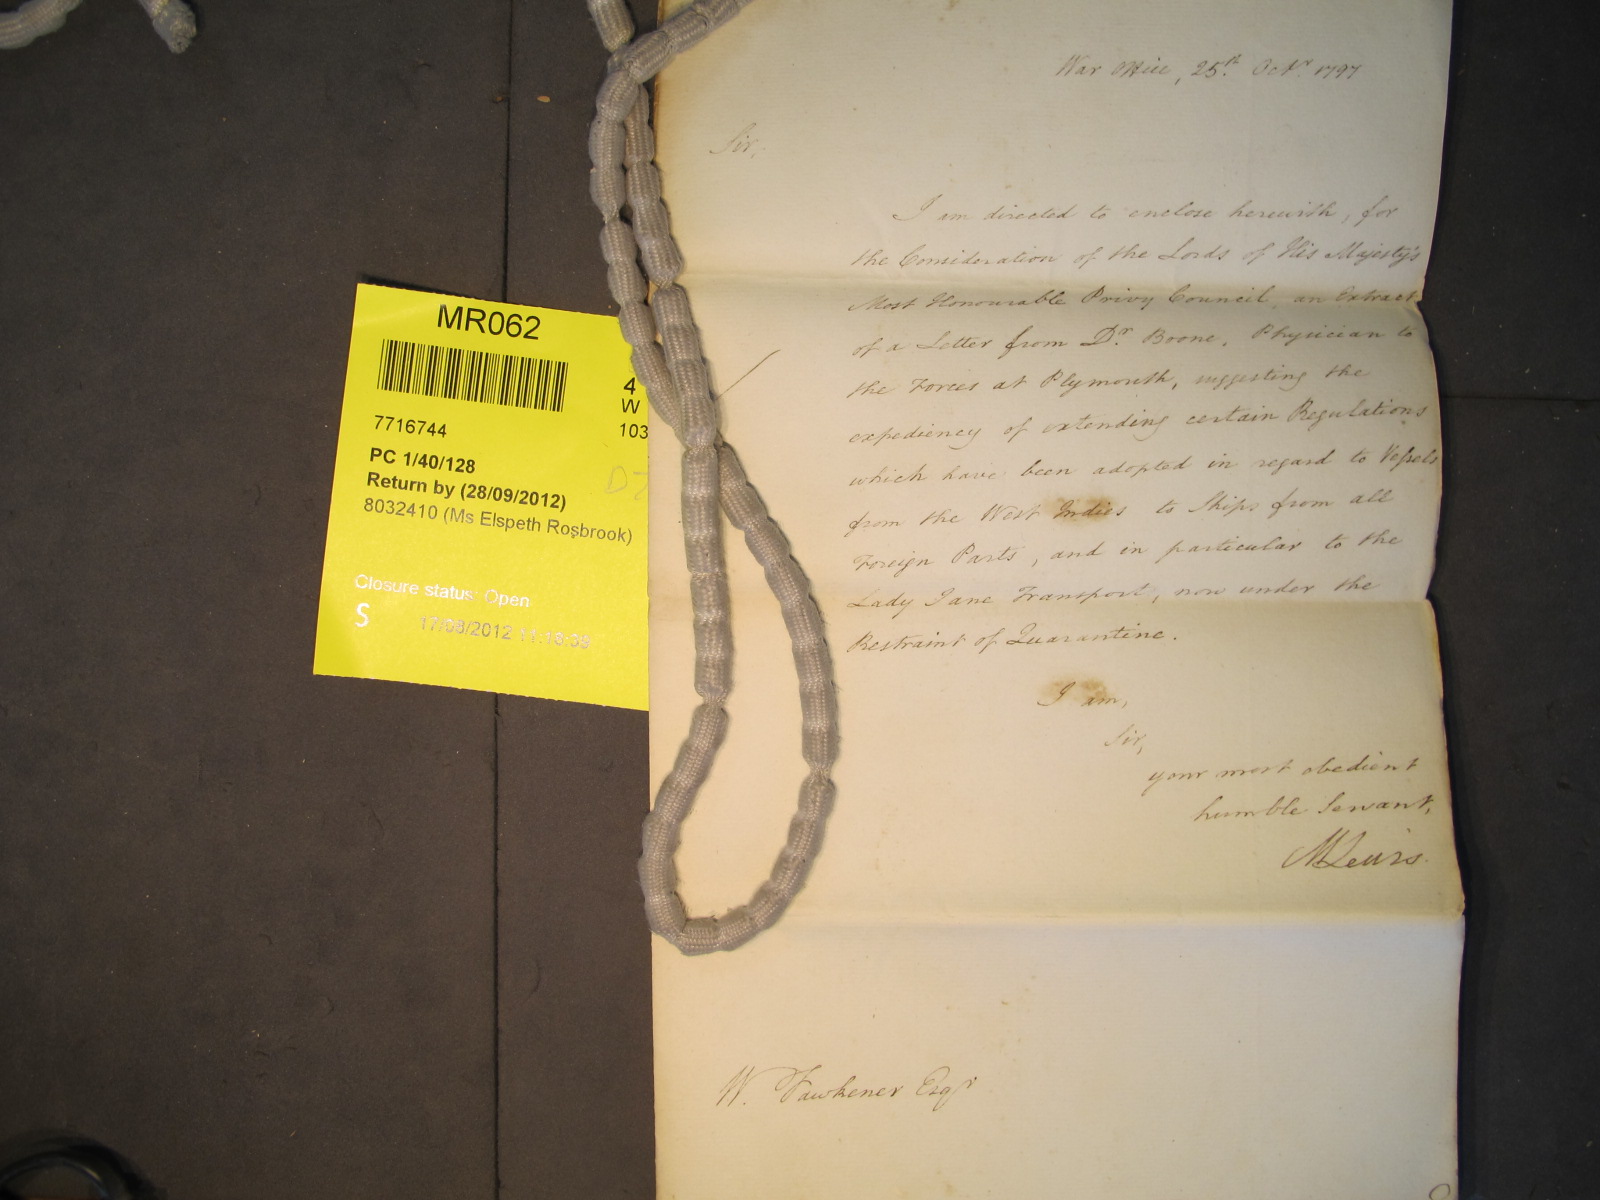 War Office, 25th. Octr. 1797
Sir,
I am directed to enclose herewith, for
the Consideration of the Lords of His Majesty's
Most Honourable Privy Council, an Extract
of a Letter from Dr. Boone, Physician to
the Forces at Plymouth, suggesting the
expediency of extending certain Regulations
which have been adopted in regard to Vessels
from the West Indies to Ships from all
Foreign Parts, and in particular to the
Lady Jane Transport, now under the
Restraint of Quarantine.
I am,
Sir,
your most obedient
humble Servant,
MLewis.
W. Fawkener Esqr
MR062
7716744
4
W
103
PC 1/40/128
Return by (28/09/2012)
8032410 (Ms Elspeth Rosbrook)
Closure status: Open
S
17/08/2012